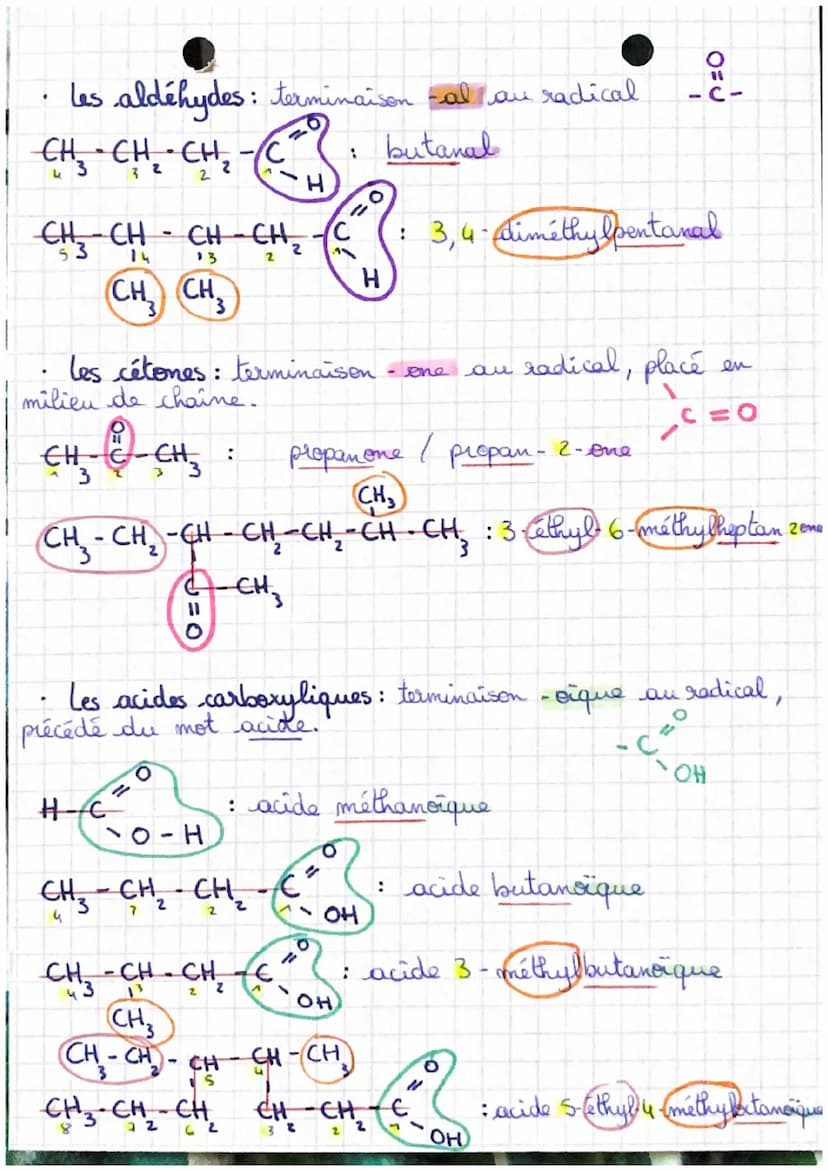 O
· Les aldéhydes : terminaison -al au radical - C -
CH3 - CH2 - CH2 - C = O : butanal
4 3 2 1 - H
CH3 - CH - CH - CH2 - C = O : 3,4-diméthylpentanal
5 4 3 2 1 H
CH3 CH3
· Les cétones : terminaison -one au radical, placé en
milieu de chaîne. C = O
O
CH3 - C - CH3 : propanone / propan-2-one
1 2 3
CH3
CH3 - CH2 - CH - CH2 - CH2 - CH - CH3 : 3-éthyl-6-méthylheptan 2 one
C - CH3
O
· Les acides carboxyliques : terminaison -oïque au radical,
précédé du mot acide. - C = O
OH
O
H - C : acide méthanoïque
O - H
O
CH3 - CH2 - CH2 - C : acide butanoïque
4 2 1 OH
O
CH3 - CH - CH2 - C : acide 3-méthylbutanoïque
4 3 2 1 OH
CH3
CH3 - CH2 - CH - CH - CH3
5 4 O
CH3 - CH2 - CH2 CH2 - CH2 - C : acide 5-éthyl-4-méthyloctanoïque
8 7 6 3 2 1 OH